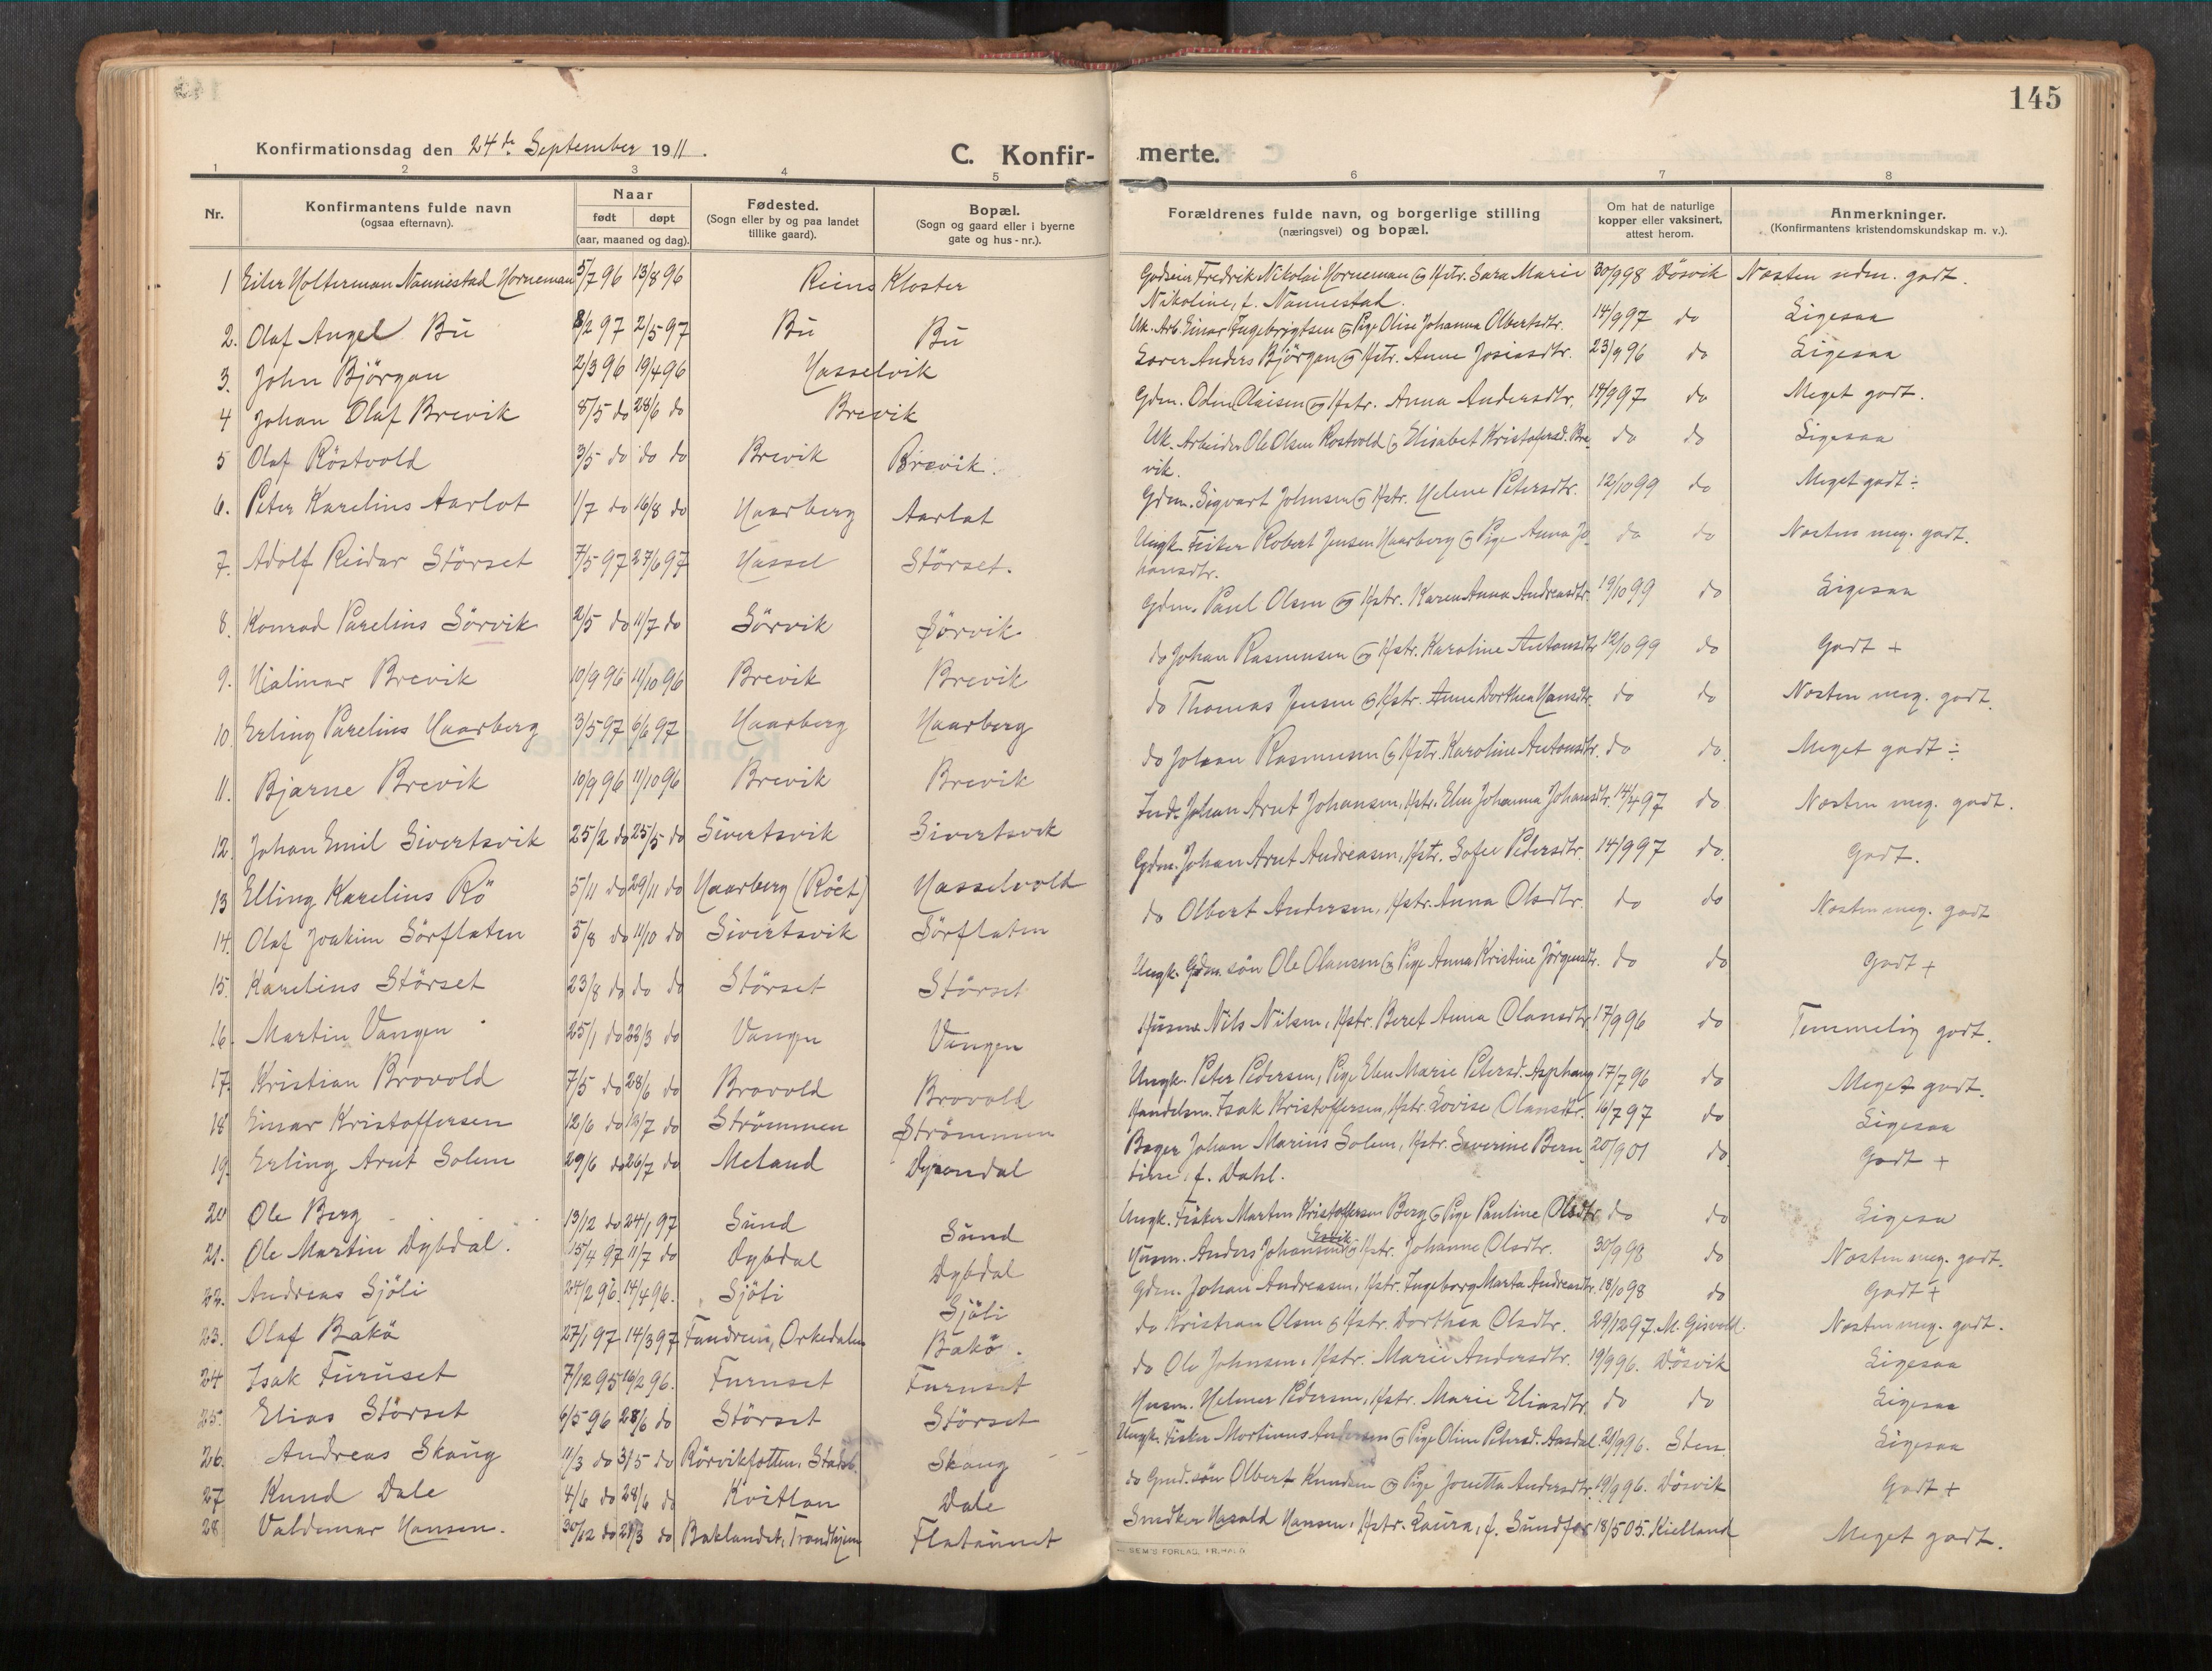 145
Konfirmationsdag den 24de September 1911.
C. Konfir- merte.
1 2 3 4 5 6 7 8
Nr.
Konfirmantens fulde navn
(ogsaa efternavn).
Naar
født døpt
(aar, maaned og dag).
Fødested.
(Sogn eller by og paa landet
tillike gaard).
Bopæl.
(Sogn og gaard eller i byerne
gate og hus-nr.).
Forældrenes fulde navn, og borgerlige stilling
(næringsvei) og bopæl.
Om hat de naturlige
kopper eller vaksinert,
attest herom.
Anmerkninger.
(Konfirmantens kristendomskundskap m. v.).
1 Eiler Holterman Nannestad Horneman 5/7 96 13/8 96 Reins Kloster Godseier Fredrik Nikolai Horneman og Hstr. Sara Marie 30/9 98 Dösvik Næsten udm. godt.
Nikoline, f. Nannestad.
2. Olaf Angel Bu 8/2 97 2/5 97 Bu Bu Uk. Arb. Einar Ingebrigtsen og Pige Olise Johanna Olbertsdtr. 14/9 97 do Ligesaa
3. John Björgan 2/3 96 19/4 96 Hasselvik Lærer Anders Björgan og Hstr. Anne Josiasdtr. 23/9 96 do Ligesaa
4 Johan Olaf Brevik 8/5 do 28/6 do Brevik Gdm. Odin Olaisen og Hstr. Anna Andersdtr. 14/9 97 do Meget godt.
5 Olaf Röstvold 3/5 do do do Brevik Brevik. Uk. Arbeider Ole Olsen Rostvold og Elisabet Kristofersd. Bre- do do Ligesaa
vik.
6. Peter Karelius Aarlot 1/7 do 16/8 do Haarberg Aarlot Gdm. Sigvart Johnsen og Hstr. Helene Petersdtr. 12/10 99 do Meget godt ÷
7. Adolf Reidar Störset 7/5 97 27/6 97 Hassel Störset. Ungk. Fisker Robert Jensen Haarberg og Pige Anna Jo- do do Næsten meg. godt.
hansdtr.
8. Konrad Parelius Sörvik 2/5 do 11/7 do Sörvik Sörvik Gdm. Paul Olsen og Hstr. Karen Anna Andreasdtr. 19/10 99 do Ligesaa
9. Hjalmar Brevik 10/9 96 11/10 96 Brevik Brevik do Johan Rasmussen og Hstr. Karoline Antonsdtr 12/10 99 do Godt +
10. Erling Parelius Haarberg 3/5 97 6/6 97 Haarberg Haarberg do Thomas Jensen og Hstr. Anne Dorthea Hansdtr. do do Næsten meg. godt.
11. Bjarne Brevik 10/9 96 11/10 96 Brevik Brevik do Johan Rasmussen og Hstr. Karoline Antonsdtr. do do. Meget godt ÷
12. Johan Emil Sivertsvik 25/2 do 25/5 do Sivertsvik Sivertsvik Johan Arnt Johansen, Hstr. Elen Johanna Johansdtr. 14/4 97 do Næsten meg. godt.
13 Elling Karelius Rö 5/11 do 29/11 do Haarberg (Röet) Hasselvold Gdm. Johan Arnt Andreasen, Hstr. Sofie Pedersdtr. 14/9 97 do. Godt.
14. Olaf Joakim Sörflaten 5/8 do 11/10 do Sivertsvik Sörflaten do Olbert Andersen, Hstr. Anna Olsdtr. do do Næsten meg. godt
15. Karelius Störset 23/8 do do do Störset Störset Ungk. Gdm. sön Ole Olausen og Pige Anna Kristine Jörgensdtr. do do Godt +
16. Martin Vangen 25/1 do 22/3 do Vangen Vangen Husm. Nils Nilsen, Hstr. Beret Anna Olausdtr. 17/9 96 do Temmelig godt.
17. Kristian Brovold 7/5 do 28/6 do Brovold Brovold Ungk. Peter Pedersen, Pige Elen Marie Petersd. Asphaug 17/7 96 do Meget godt.
18 Einar Kristoffersen 12/6 do 19/7 do Strömmen Strömmen Handelsm. Isak Kristoffersen, Hstr. Lovise Olausdtr. 16/7 97 do Ligesaa
19. Erling Arnt Solem 29/6 do 26/7 do Meland Dyrendal Bager Johan Marius Solem, Hstr. Severine Bern- 20/9 01 do. Godt +
tine, f. Dahl.
20 Ole Berg 13/12 do 24/1 97 Sund Sund Ungk. Fisker Martin Kristoffersen Berg og Pige Pauline Olsdtr do do Ligesa
21. Ole Martin Dybdal. 15/4 97 11/7 do Dybdal Dybdal Husm. Anders Johansen og Hstr. Johanne Olsdtr. 30/9 98 do Næsten meg. godt.
22. Andreas Sjöli 24/2 96. 14/4 96. Sjöli Sjöli Gdm. Johan Andreasen, Hstr. Ingeborg Marta Andreasdtr. 18/10 98 do Godt +
23. Olaf Bakö 27/1 97 14/3 97 Fandrem, Orkedalen Bakö. do Kristian Olsen og Hstr. Dorthea Olsdtr. 29/12 97. M. Gisvold. Næsten meg. godt.
24 Isak Furuset 7/12 95 16/2 96. Furuset Furuset do Ole Johnsen, Hstr. Marie Andersdtr. 19/9 96. Dösvik Ligesaa
25. Elias Störset 6/5 96 28/6 do Störset Störset Husm. Helmer Pedersen, Hstr. Marie Eliasdtr. do do Ligesaa
26. Andreas Skaug 11/3 do 31/5 do Rörvikfotten, Stadsb. Skaug Ungk. Fisker Mortinus Andersen og Pige Oline Petersd. Aasdal 21/9 96. Sten Ligesaa
27 Knud Dale 4/6 do 28/6 do Kvitlan Dale do Gmd. sön Olbert Knudsen og Pige Jonetta Andersdtr. 19/9 96. Dösvik Godt +
28 Valdemar Hansen. 30/12 do 21/3 do Baklandet, Trondhjem Flatunet Snedker Harald Hansen, Hstr. Laura, f. Sundfør 18/5 05. Kielland Meget godt.
SEM'S FORLAG, FR.HALD